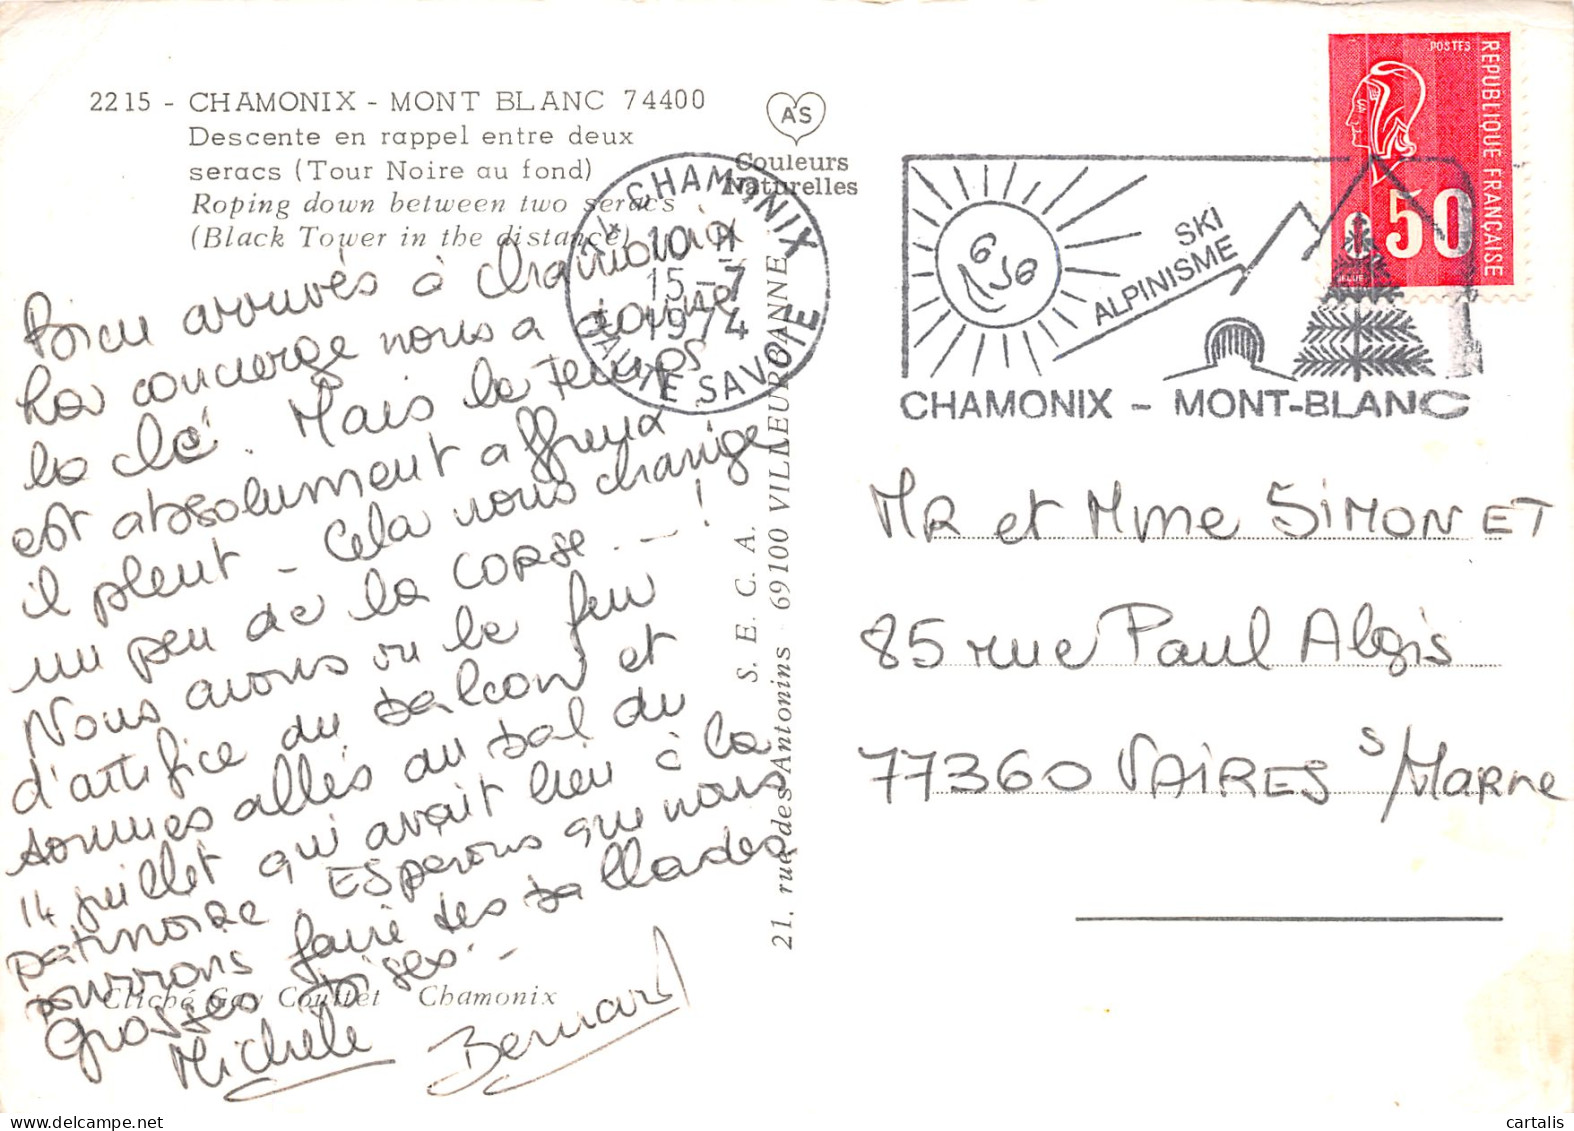 2215 - CHAMONIX - MONT BLANC 74400
Descente en rappel entre deux
seracs (Tour Noire au fond)
Roping down between two seracs
(Black Tower in the distance)
AS
Couleurs
Naturelles
74 CHAMONIX
10 H
15 - 7
1974
HAUTE SAVOIE
SKI
ALPINISME
CHAMONIX - MONT-BLANC
POSTES
REPUBLIQUE FRANÇAISE
0,50
Bien arrivés à chamonix
la concierge nous a donné
la clé. Mais le temps
est absolument affreux
il pleut - Cela nous change
un peu de la CORSE - !
Nous avons vu le feu
d'artifice du balcon et
sommes allés au bal du
14 juillet qui avait lieu à la
patinoire. Esperons que nous
pourrons faire des ballades
Grosses bises. -
Michèle Bernard
Cliché Gay Couttet Chamonix
S. E. C. A.
21, rue des Antonins 69100 VILLEURBANNE
MR et Mme SIMONET
85 rue Paul Algis
77360 VAIRES S/MARNE
cartalis
www.delcampe.net